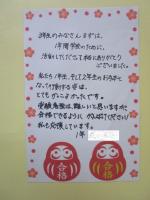 3年生のみなさんまずは、
1年間学校のために、
活動してくださって本当にありがとう
ございました。
私たち1年生、そして2年生のお手本と
なって行動する姿は、
とてもかっこよかったです。
受験勉強は難しいと思いますが、
合格できるように がんばってください!
私も応援しています。
1年
合格
合格